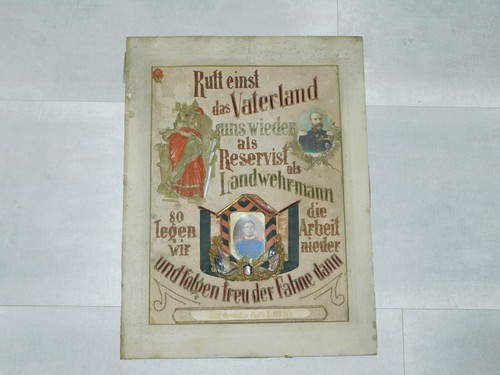 Ruft einst
das Vaterland
uns wieder
als
Reservist
als
Landwehrmann
so
legen
wir
die
Arbeit
nieder
und folgen treu der Fahne dann